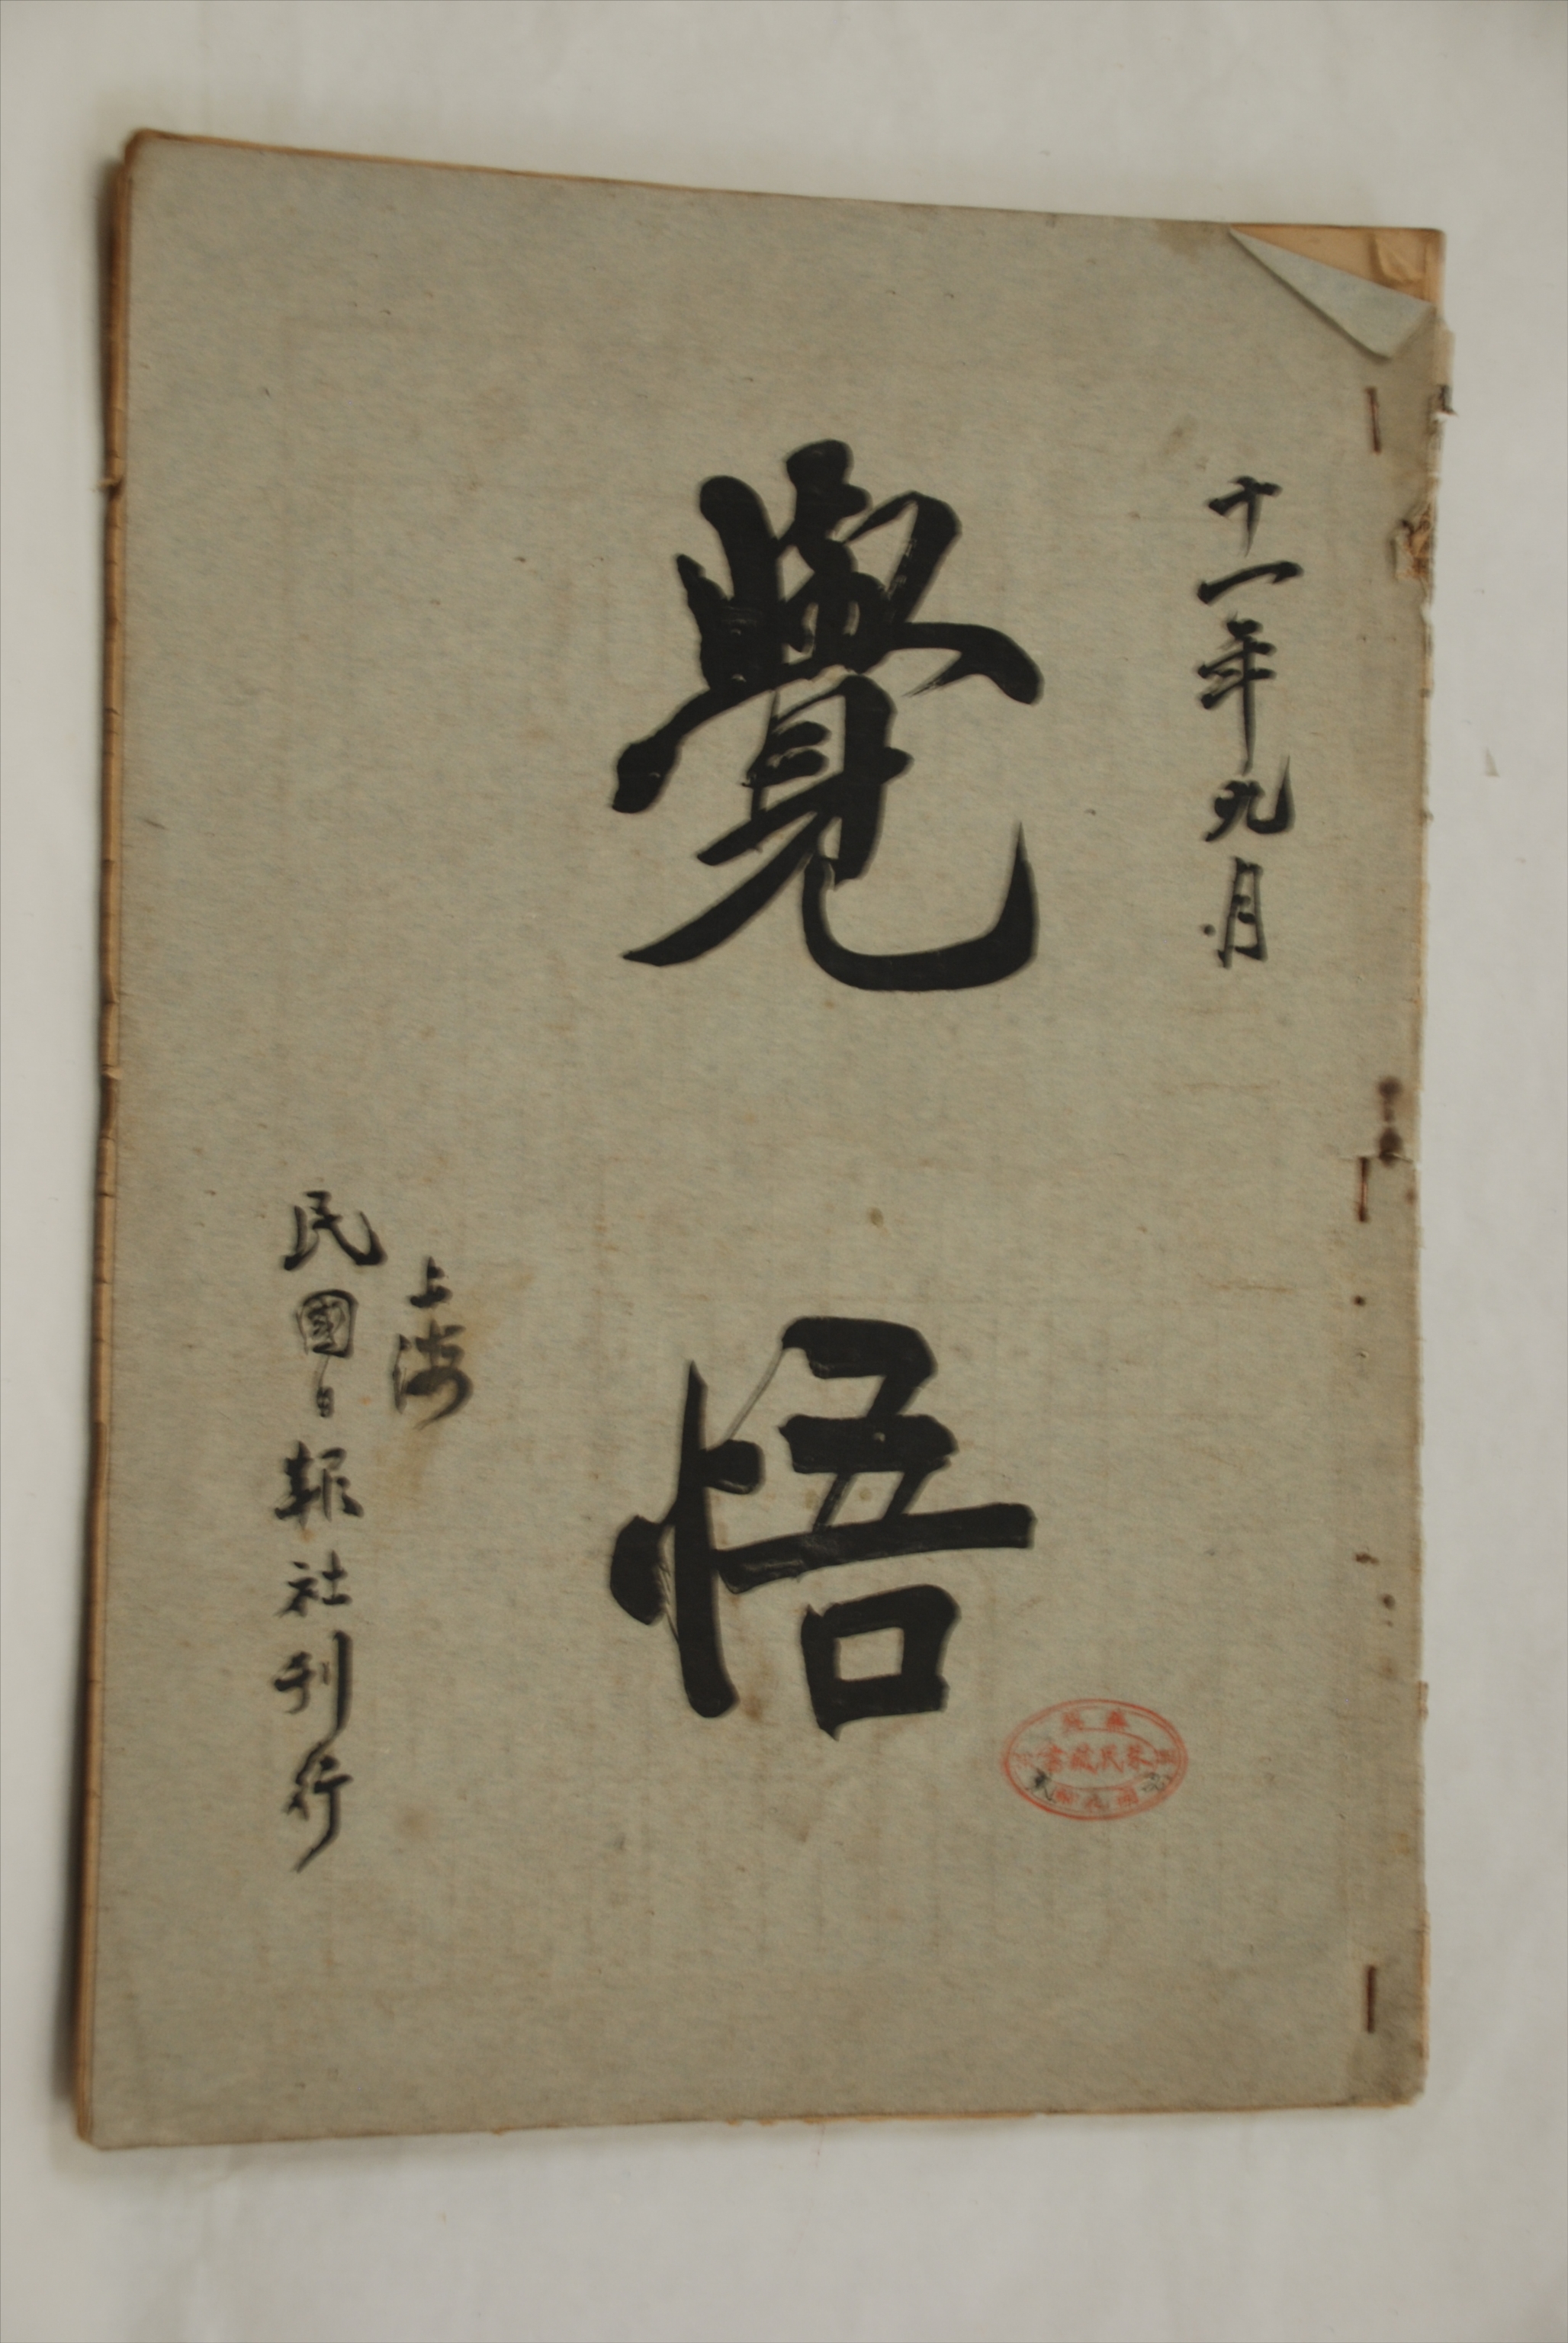 十一年九月
覺悟
上海
民國日報社刊行
民藏書